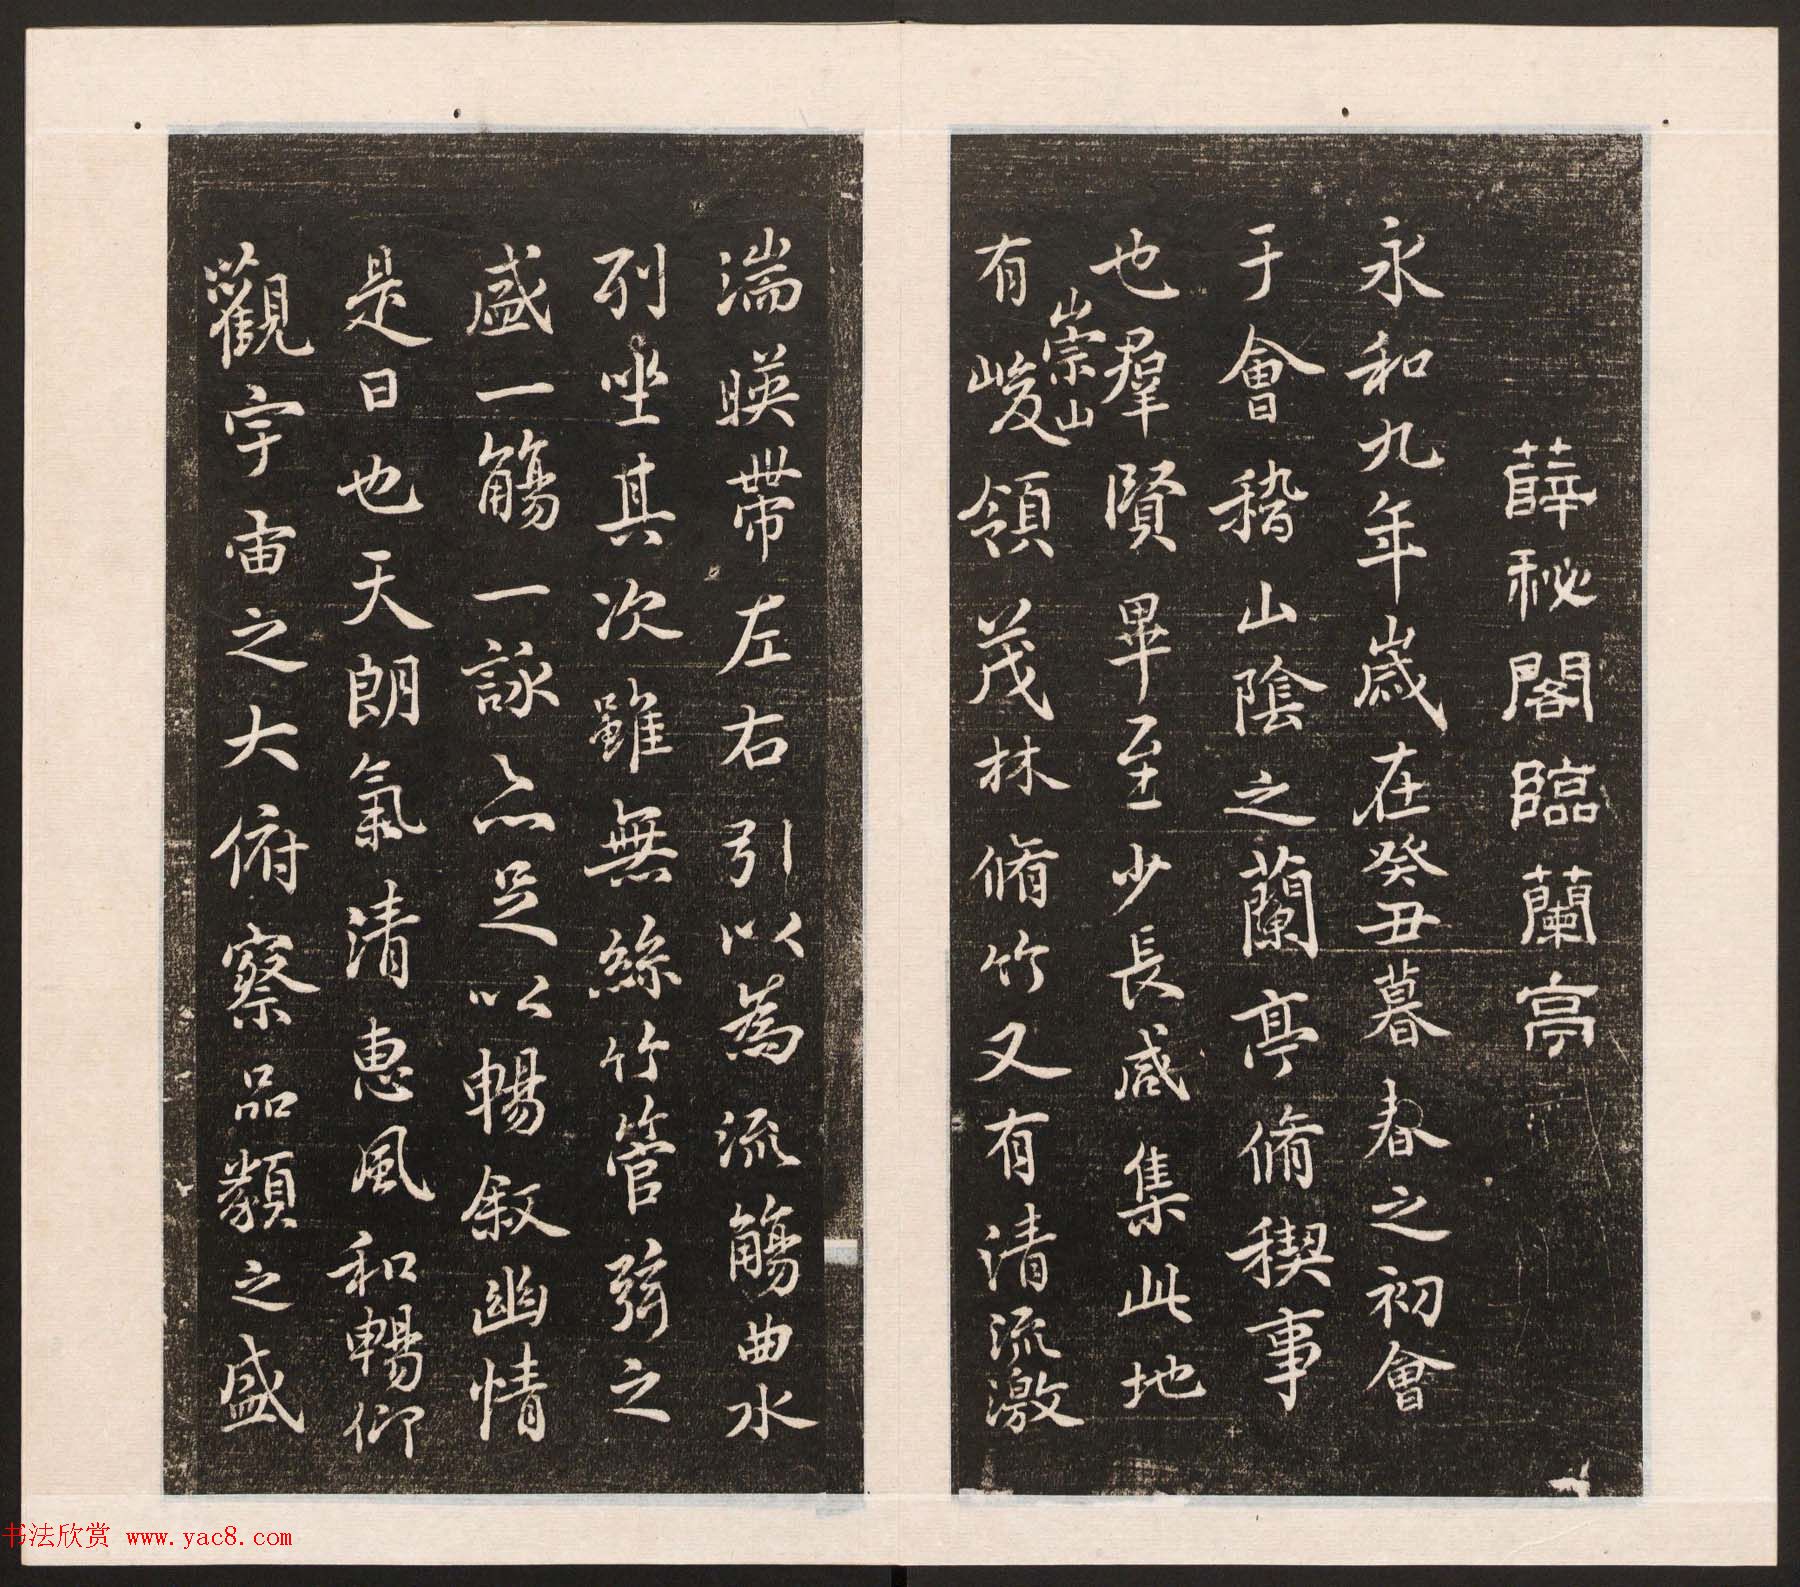 薛秘閣臨蘭亭
永和九年歲在癸丑暮春之初會
于會稽山陰之蘭亭脩稧事
也羣賢畢至少長咸集此地
有崇山峻領茂林脩竹又有清流激
湍暎帶左右引以為流觴曲水
列坐其次雖無絲竹管弦之
盛一觴一詠亦足以暢敘幽情
是日也天朗氣清惠風和暢仰
觀宇宙之大俯察品類之盛
书法欣赏 www.yac8.com